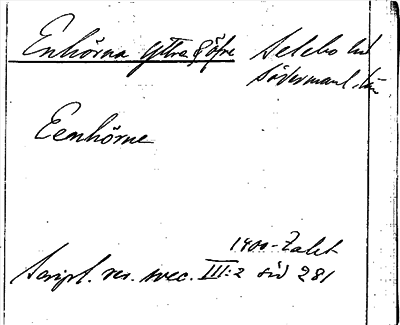 Enhörna Yttre & öfre Selebo hd
Södermanl. län
Eenhörne
1400-Talet
Script. rer. svec. III:2 sid 281